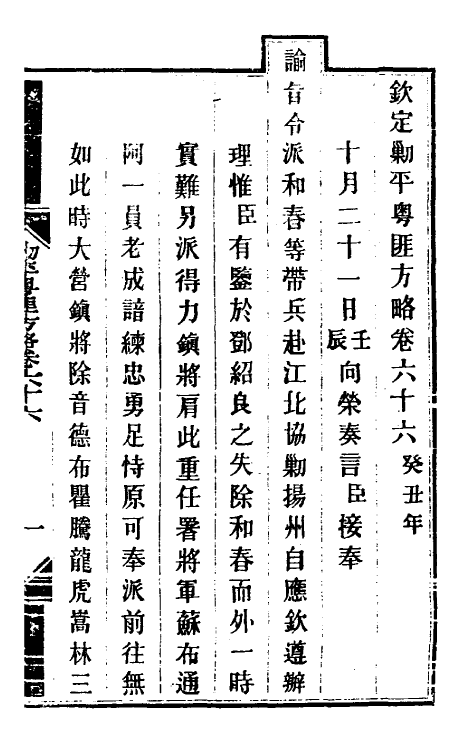 欽定勦平粵匪方略卷六十六癸丑年
十月二十一日壬辰向榮奏言臣接奉
諭旨令派和春等帶兵赴江北協勦揚州自應欽遵辦
理惟臣有鑒於鄧紹良之失除和春而外一時
實難另派得力鎮將肩此重任署將軍蘇布通
阿一員老成諳練忠勇足恃原可奉派前往無
如此時大營鎮將除音德布瞿騰龍虎嵩林三
一